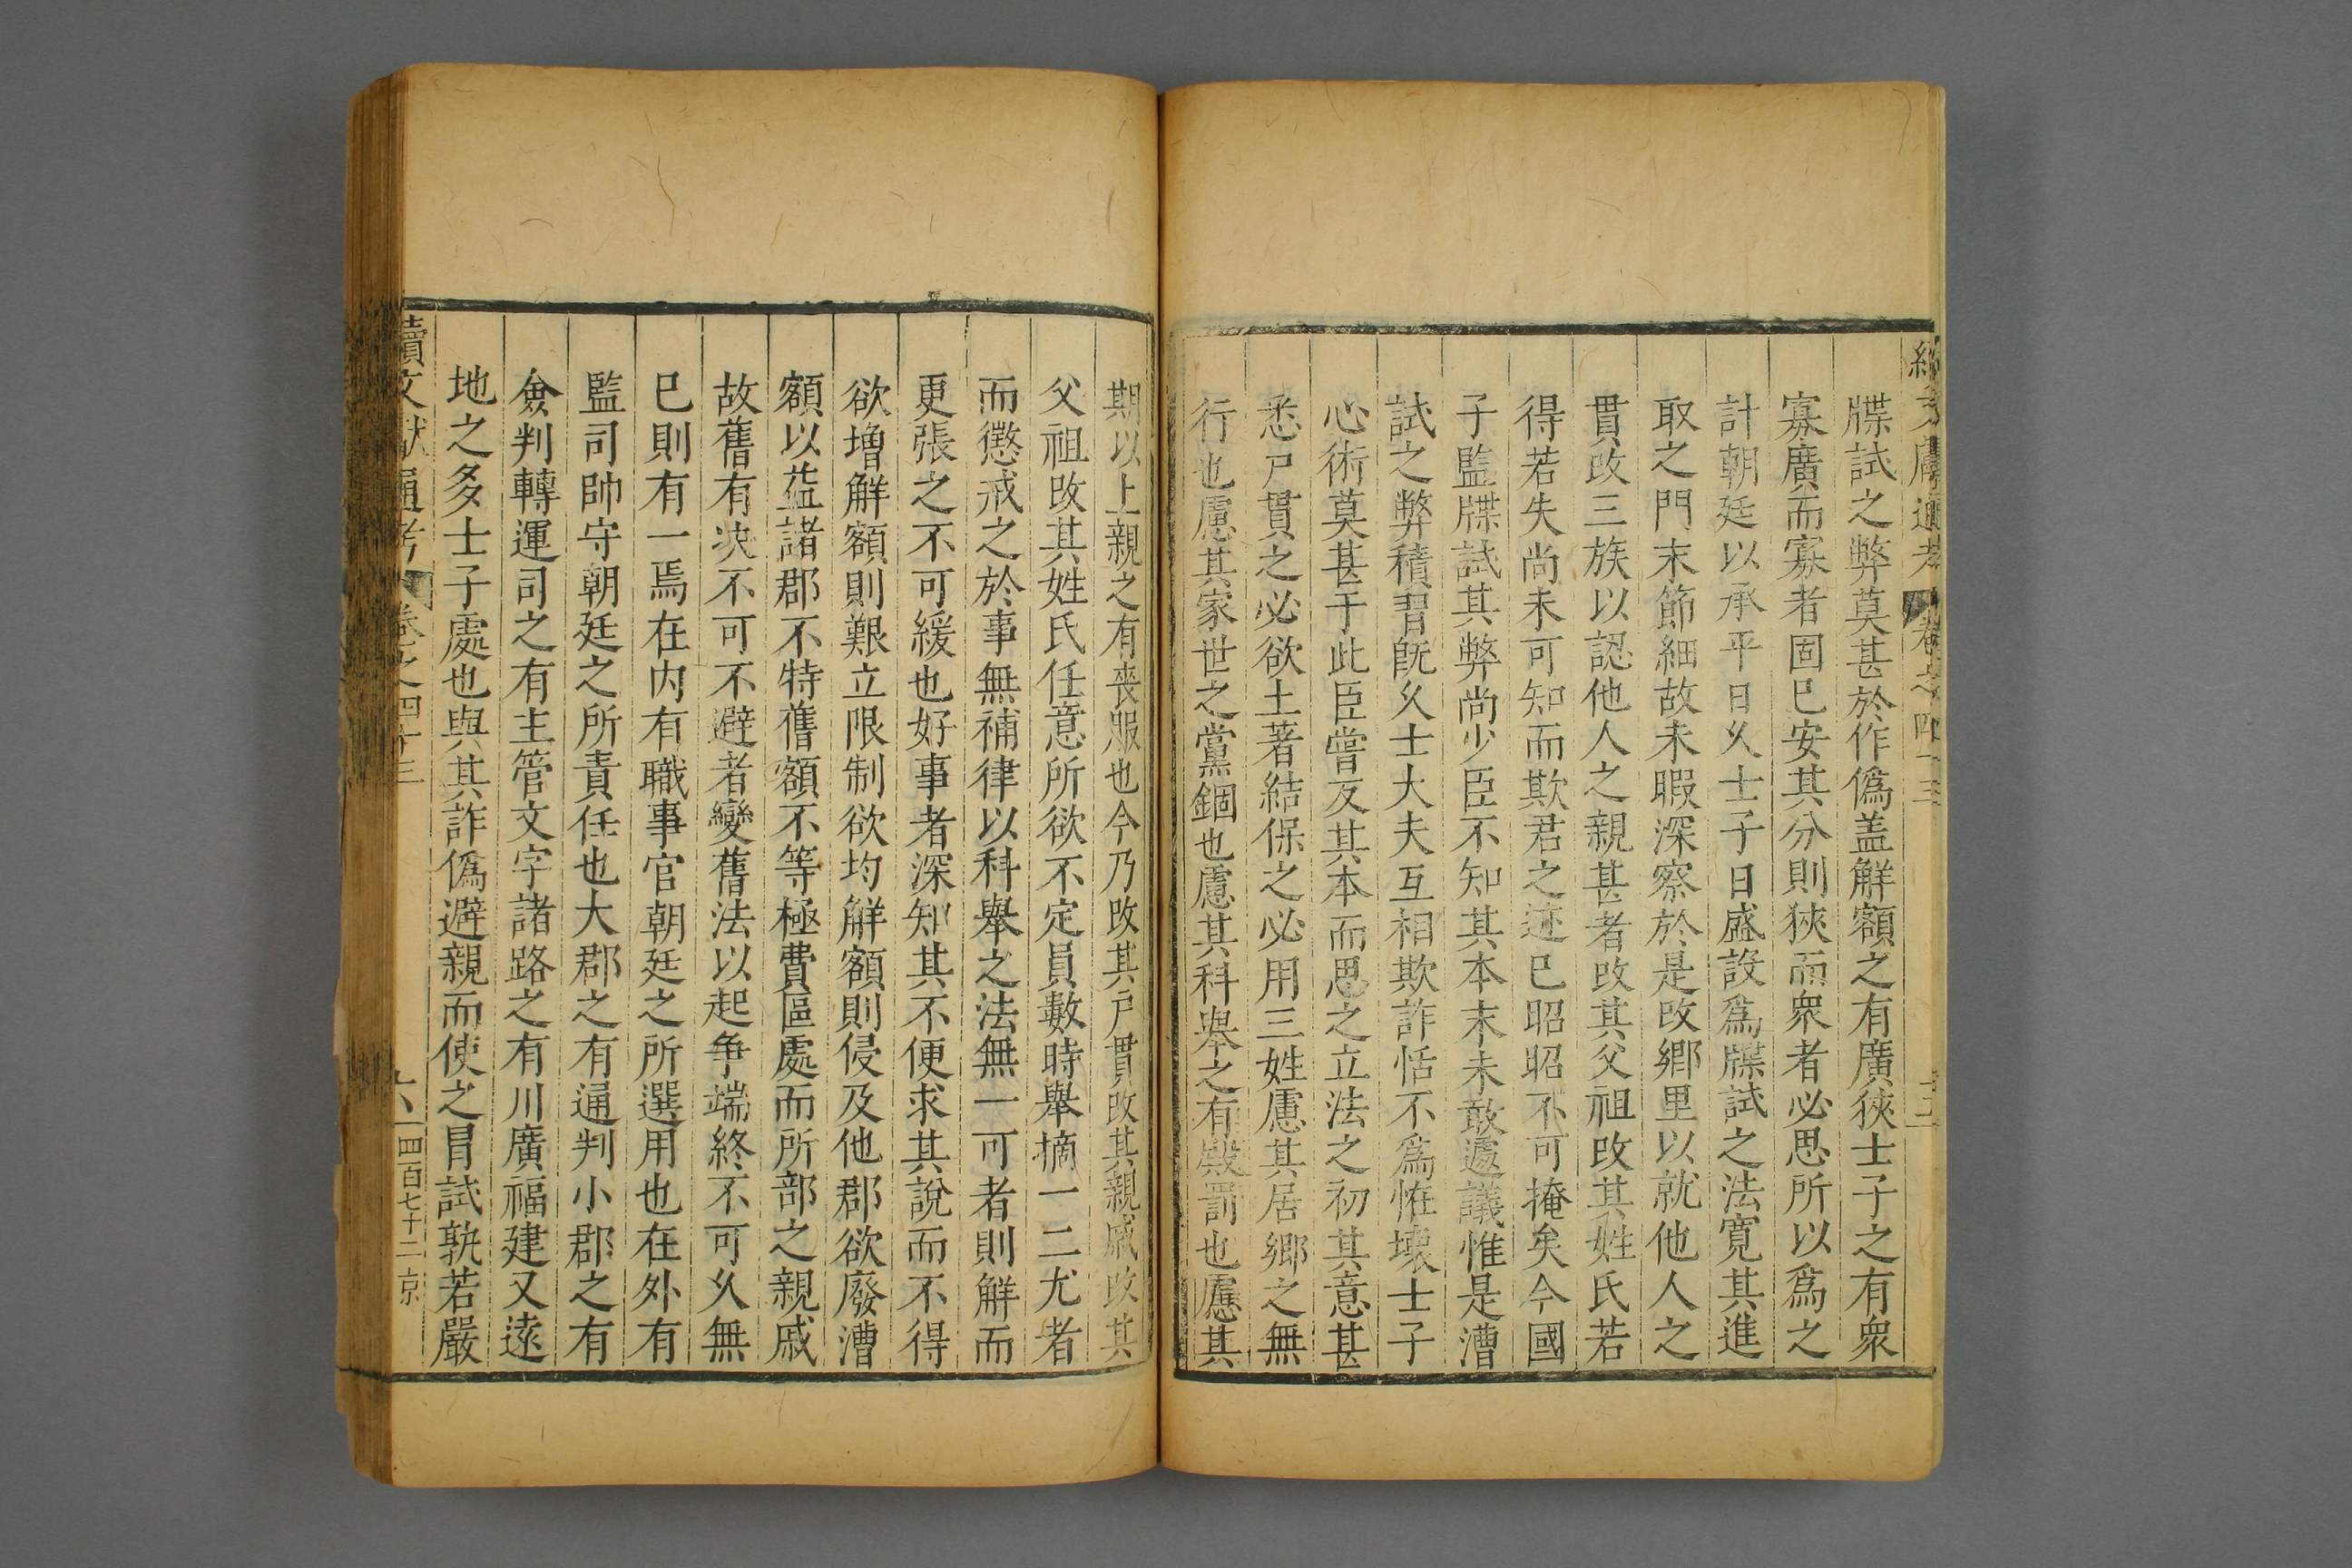 牒試之弊莫甚於作僞盖解額之有廣狹士子之有衆
寡廣而寡者固已安其分則狹而衆者必思所以爲之
計朝廷以承平日乆士子日盛設爲牒試之法寛其進
取之門末節細故未暇深察於是改鄉里以就他人之
貫改三族以認他人之親甚者改其父祖改其姓氏若
得若失尚未可知而欺君之迹已昭昭不可掩矣今國
子監牒試其弊尚少臣不知其本末未敢遽議惟是漕
試之弊積習旣乆士大夫互相欺詐恬不爲恠壞士子
心術莫甚于此臣嘗反其本而思之立法之初其意甚
悉戸貫之必欲土著結保之必用三姓慮其居鄉之無
行也慮其家世之黨錮也慮其科舉之有殿罰也慮其
期以上親之有喪服也今乃改其戸貫改其親戚改其
父祖改其姓氏任意所欲不定員數時舉摘一二尤者
而懲戒之於事無補律以科舉之法無一可者則解而
更張之不可緩也好事者深知其不便求其說而不得
欲增解額則艱立限制欲均解額則侵及他郡欲廢漕
額以益諸郡不特舊額不等極費區處而所部之親戚
故舊有决不可不避者變舊法以起爭端終不可乆無
已則有一焉在内有職事官朝廷之所選用也在外有
監司帥守朝廷之所責任也大郡之有通判小郡之有
僉判轉運司之有主管文字諸路之有川廣福建又逺
地之多士子處也與其詐僞避親而使之冒試孰若嚴
續文獻通考 卷之四十三 六 四百七十二 京